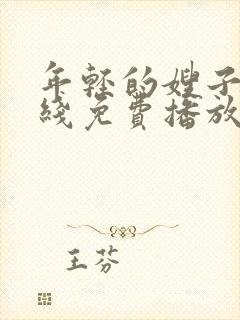 年轻的嫂子
线免费播放
王芬